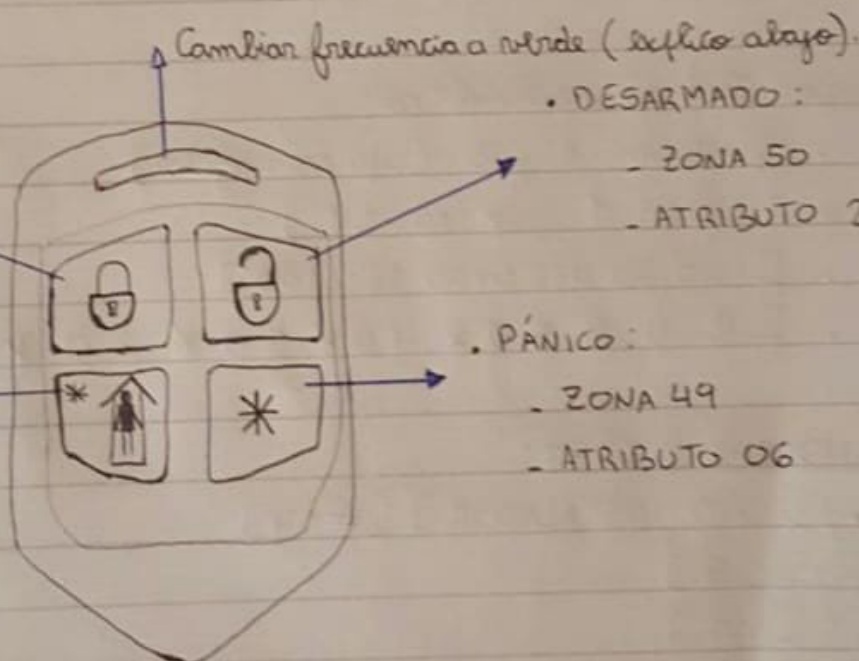 Cambiar frecuencia a verde (explico abajo).
• DESARMADO:
- ZONA 50
- ATRIBUTO 2
• PÁNICO:
- ZONA 49
- ATRIBUTO 06